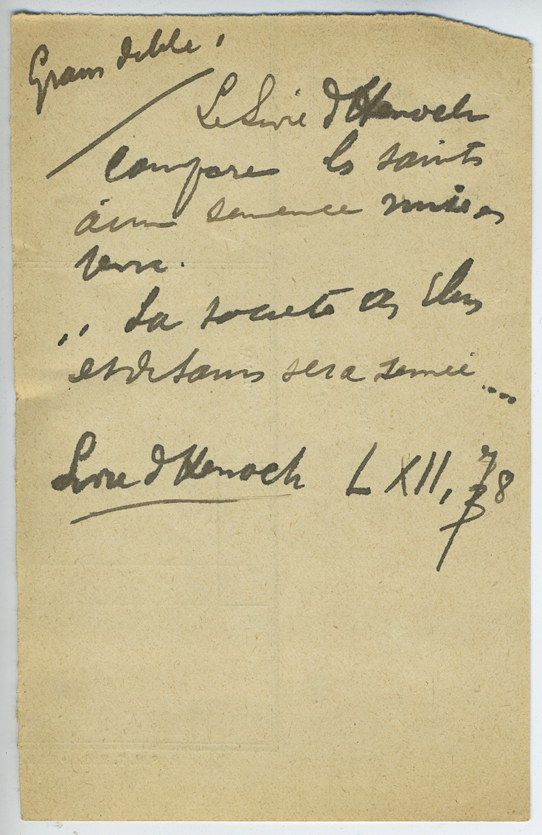 Grain de blé.
Le Livre d'Henoch
compare les saints
à une semence mise en
terre.
" La société des Elus
et de saints sera semée....
Livre d'Henoch LXII, 78